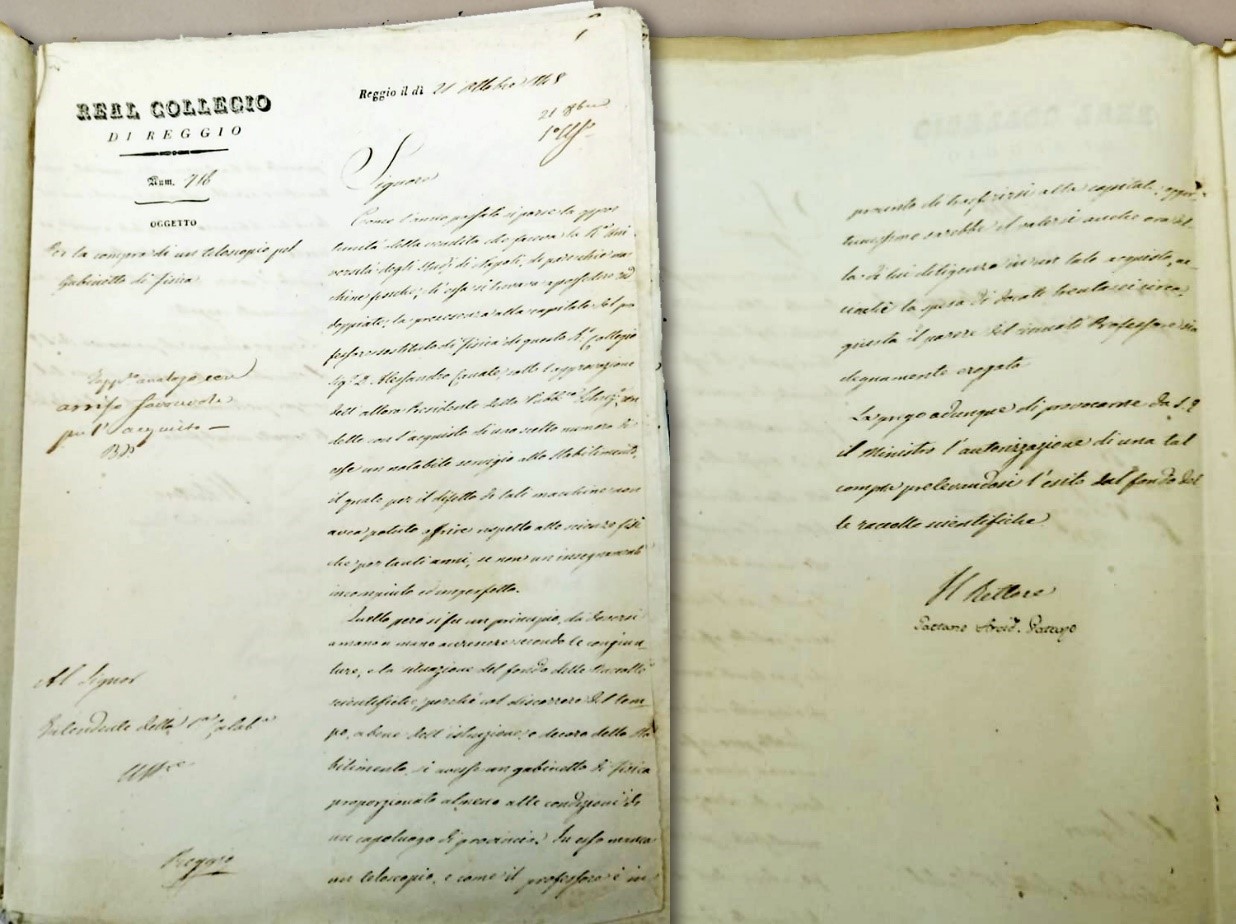 REAL COLLEGIO
DI REGGIO
Num. 718
OGGETTO
Per la compra di un telescopio pel
Gabinetto di fisica
analogo con
avviso favorevole
per l'acquisto —
Al Signor
Intendente della 1ª Calabª
Ultrª
Reggio
Reggio il dì 21 Ottobre 1848
21 8bre
Signore
Come l'anno passato si porse la oppor
tunità della vendita che faceva la Rª Uni
versità degli Studi di Napoli, di parecchie mac
chine fisiche, di cui si trovava a possedere i
doppiati, la presenza alla capitale del pro
fessore sostituto di fisica di questo Rl Collegio
Sigr D. Alessandro sotto l'approvazione
dell'allora Presidente della Pubbca Istruze, ren
dette con l'acquisto di uno scelto numero di
esse un notabile servigio allo Stabilimento,
il quale per il difetto di tali macchine non
avea potuto offrire rispetto alle scienze fisi
che per tanti anni, se non un insegnamento
incompiuto ed imperfetto.
Quello però si fu un principio, da doversi
a mano a mano accrescere secondo le congiun
ture, e la situazione del fondo delle Raccolte
scientifiche, perchè col discorrere del tem
po, a bene dell'istruzione, e decoro dello Sta
bilimento, si avesse un gabinetto di fisica
proporzionato almeno alle condizioni di
un capoluogo di provincia. In esso manca
un telescopio, e come il professore è in
procinto di trasferirsi alla capitale, oppor
tunissimo sarebbe il valersi anche ora del
la di lui diligenza in un tale acquisto, ac
ciochè la spesa di ducati trentasei circa,
giusta il parere del Professore sia
degnamente erogata
La prego adunque di provocarne da S. E.
il Ministro l'autorizzazione di una tal
compra prelevandosi l'esito dal fondo del
le raccolte scientifiche
Il Rettore
Gaetano Arcid.